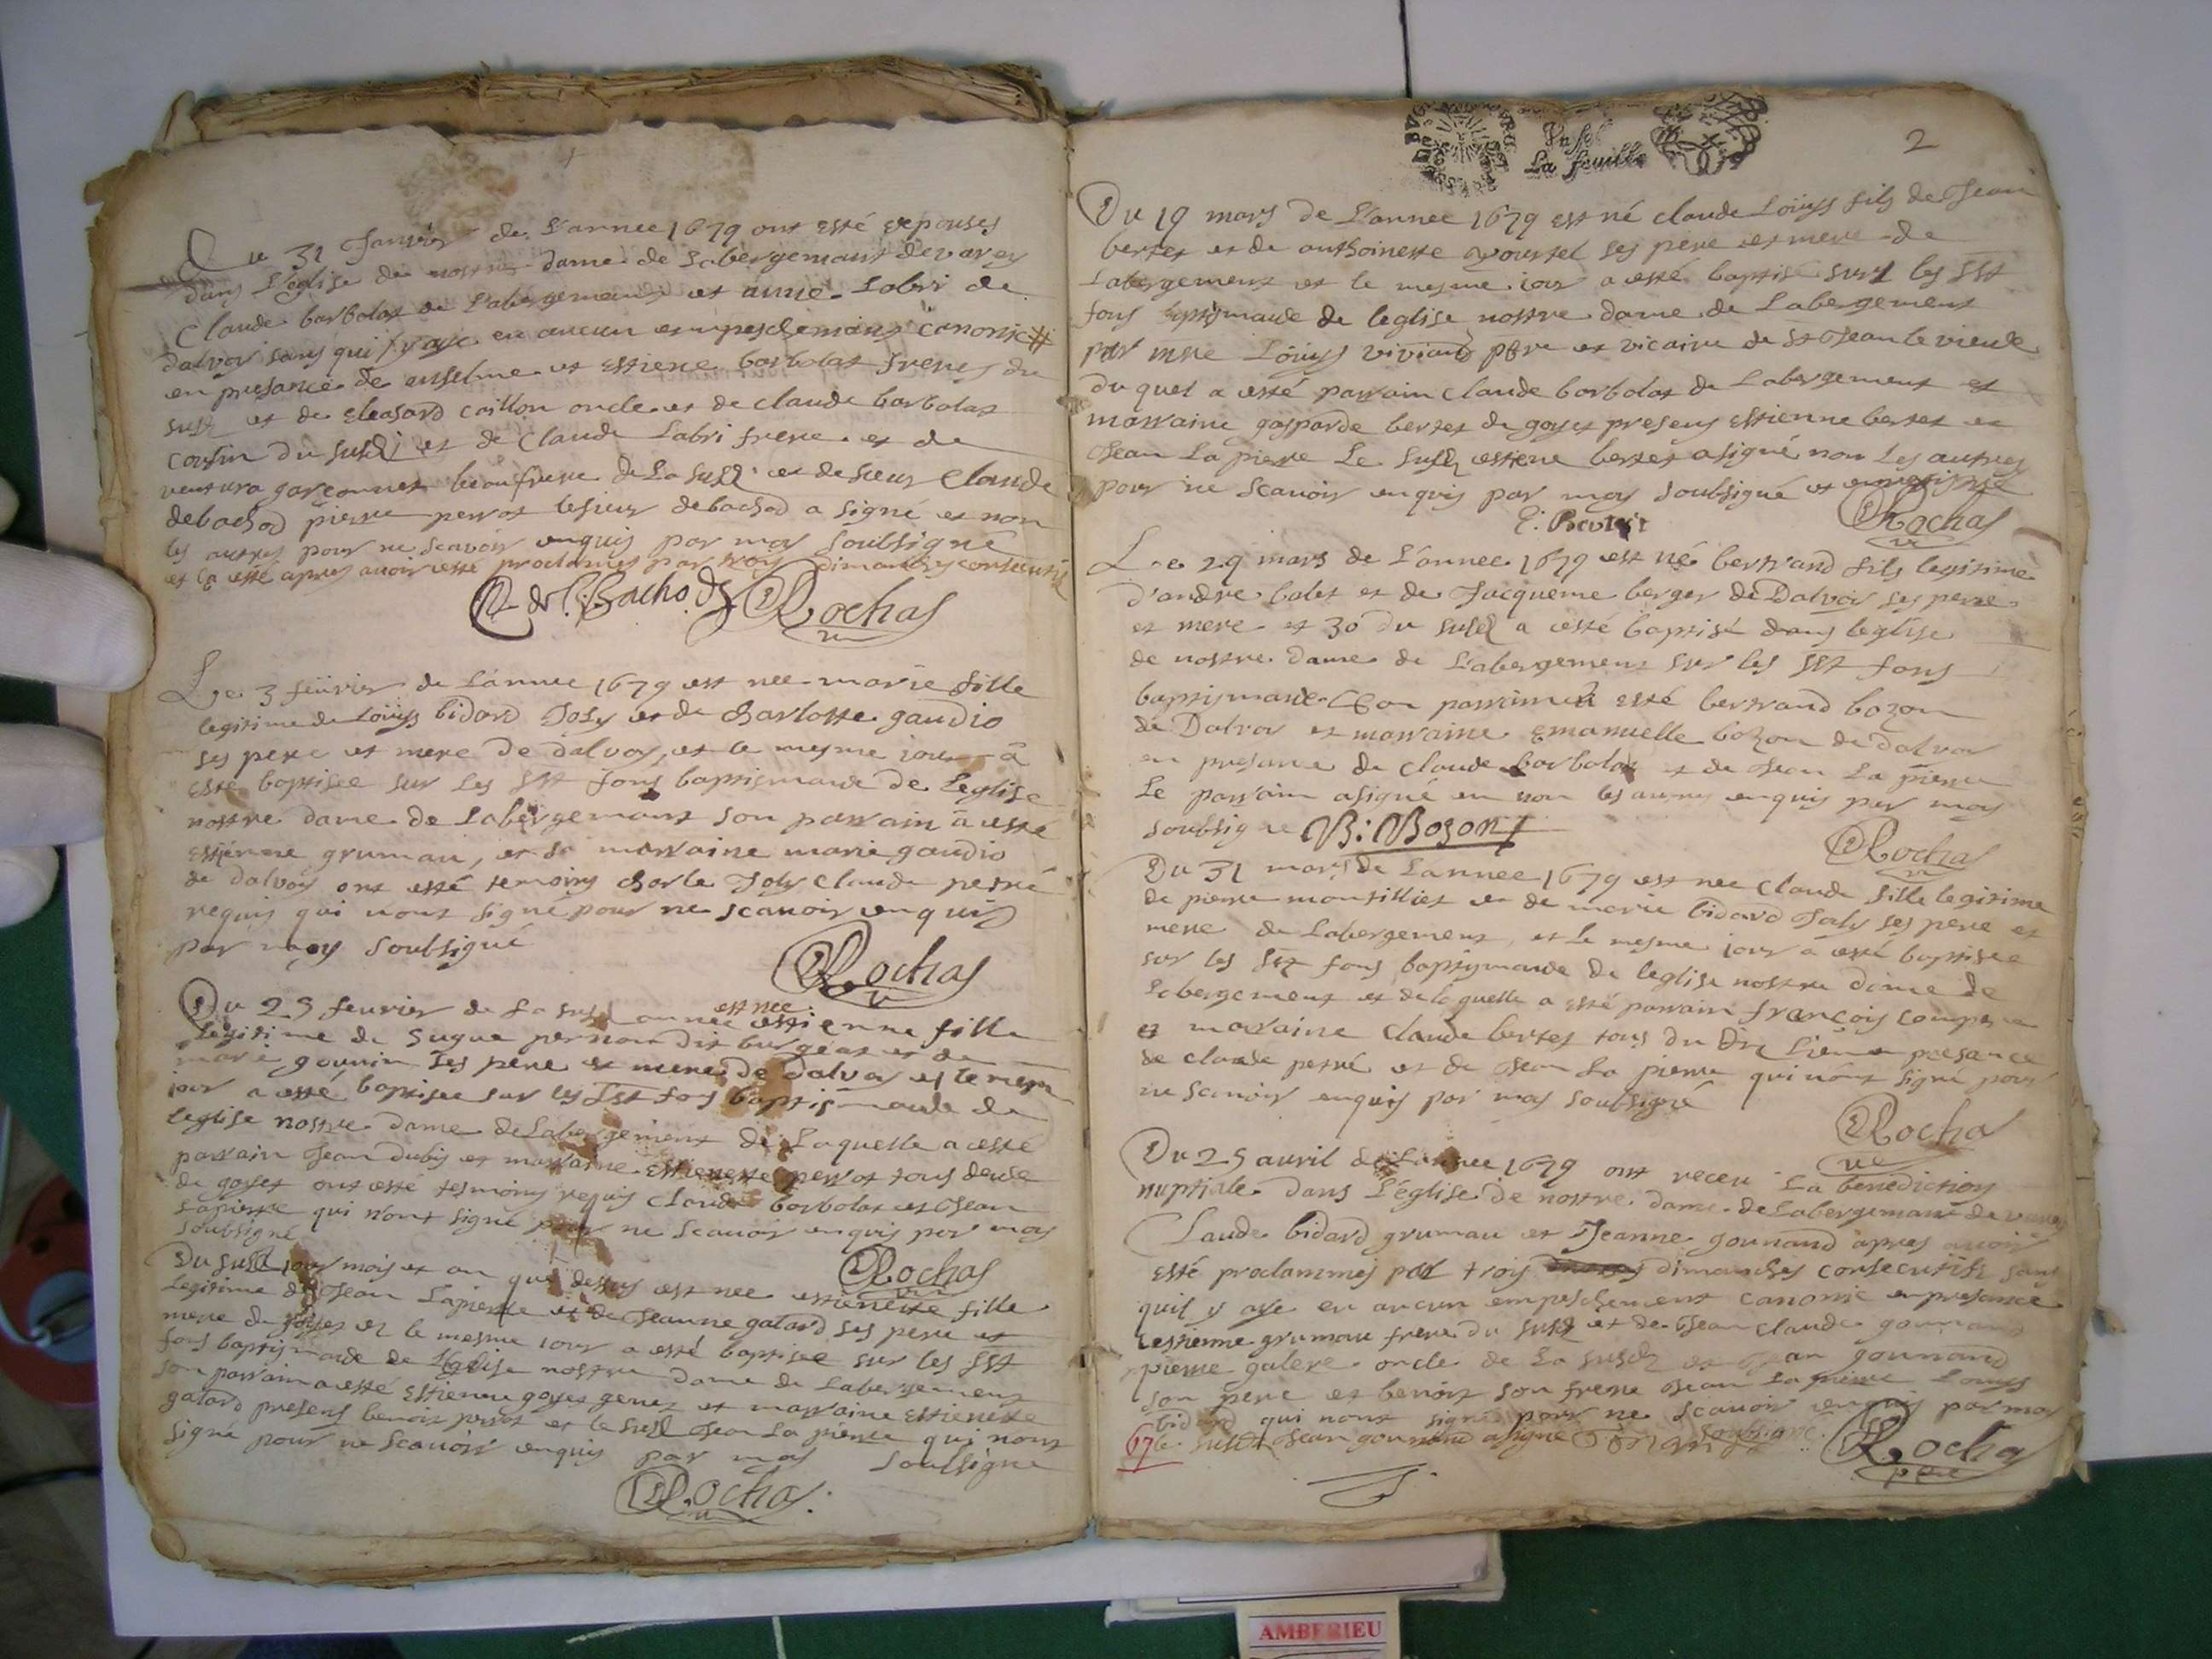 Du 31 Janvier de L'annee 1679 ont esté espouses
dans L'eglise de nostre dame de Labergemant de varey
Claude barbolat de Labergemant et anne Labri de
dalvoy sans qui y aye eu aucun empeschemant canonic #
en presance de anselme et estiene barbolat freres du
susd et de Eleasard caillon oncle et de claude barbolat
cousin du susd et de Claude Labri frere et de
ventura garconnet beaufrere de La susd et de sieur Claude
debachod pierre perrot lesieur debachod a signé et non
les autres pour ne scavoir enquis par moy soubsigné
et ça esté apres avoir esté proclames par trois dimanches consecutifs
Rochas
Le 3 feuvrier de L'annee 1679 est nee marie fille
legitime de Loüys bidard Joly et de charlotte gaudio
ses pere et mere de dalvoy, et le mesme iour a
esté baptisee sur les sst fons baptismaude de Leglise
nostre dame de Labergemant son parrain a esté
estienne grumau, et sa marraine marie gaudio
de dalvoy ont esté temoins charle Joly claude petré
requis qui n'ont signé pour ne scavoir enquis
par moy soubsigné
Rochas
est nee
Du 25 feuvrier de La susd annee estienne fille
legitime de Sugue pernon dit burgeat et de
marie gounin ses pere et mere de dalvoy et le mesme
iour a esté baptisee sur les sst fons baptismaude de
leglise nostre dame de Labergement de Laquelle a esté
parrain Jean dubis et marraine Estienette perrot tous deude
de goyet ont esté tesmoins requis claude barbolat et Jean
Lapierre qui n'ont signé pour ne scavoir enquis par moy
soubsigné
Rochas
Du susd iour mois et an que dessus est nee estienette fille
Legitime de Jean Lapierre et de Jeanne galard ses pere et
mere de goyet et le mesme iour a esté baptisee sur les sst
fons baptismaude de L'eglise nostre dame de Labergement
son parrain a esté Estienne goyet genet et marraine Estienete
galard presens benoit perrot et le susd Jean La pierre qui n'ont
signé pour ne scavoir enquis par moy soubsigné
Rochas
Un sol
La feuille
2
Du 19 mars de L'annee 1679 est né claude Loüys fils de Jean
bertet et de anthoinette ses pere et mere de
Labergement et le mesme iour a esté baptisé sur les sst
fons baptismaude de leglise nostre dame de Labergement
par mre Loüys viviand pbre et vicaire de St Jean le vieude
du quel a esté parrain claude barbolat de Labergement et
marraine gasparde bertet de goyet presens estienne bertet et
Jean La pierre Le susd estiene bertet a signé non Les autres
pour ne scavoir enquis par moy soubsigné
Rochas
Le 29 mars de L'annee 1679 est né bertrand fils legitime
d'andre balet et de Jacqueme berger de Dalvoy ses pere
et mere et 30 du susd a esté baptisé dans leglise
de nostre dame de Labergement sur les sst fons
baptismaude son parrain a esté bertrand bozon
de Dalvoy et marraine Emanuelle bozon de dalvoy
en presance de claude barbolat et de Jean La pierre
Le parrain a signé en non les autres enquis par moy
soubsigné B: Bozon
Rochas
Du 31 mars de Lannee 1679 est nee claude fille legitime
de pierre montilliet et de marie bidard Joly ses pere et
mere de Labergement, et le mesme iour a esté baptisee
sur les sst fons baptismaude de leglise nostre dame de
Labergement et de laquelle a esté parrain françois compere
et marraine claude bertet tous du dit Lieu presance
de claude petré et de Jean La pierre qui n'ont signé pour
ne scavoir enquis par moy soubsigné
Rochas
Du 25 avril de L'annee 1679 ont receu La benediction
nuptiale dans L'eglise de nostre dame de Labergemant de varey
Claude bidard grumau et Jeanne gounand apres avoir
esté proclammés par trois dimanches consecutifs sans
quil y aye eu aucun empeschement canonic en presance
destienne grumau frere du susd et de Jean claude gounand
pierre galere oncle de La susd et Jean gounand
son pere et benoit son frere Jean La pierre Louys
bidard qui n'ont signé pour ne scavoir enquis par moy
Le susd Jean gounand a signé soubsigné
Rochas
pbre
67
AMBERIEU